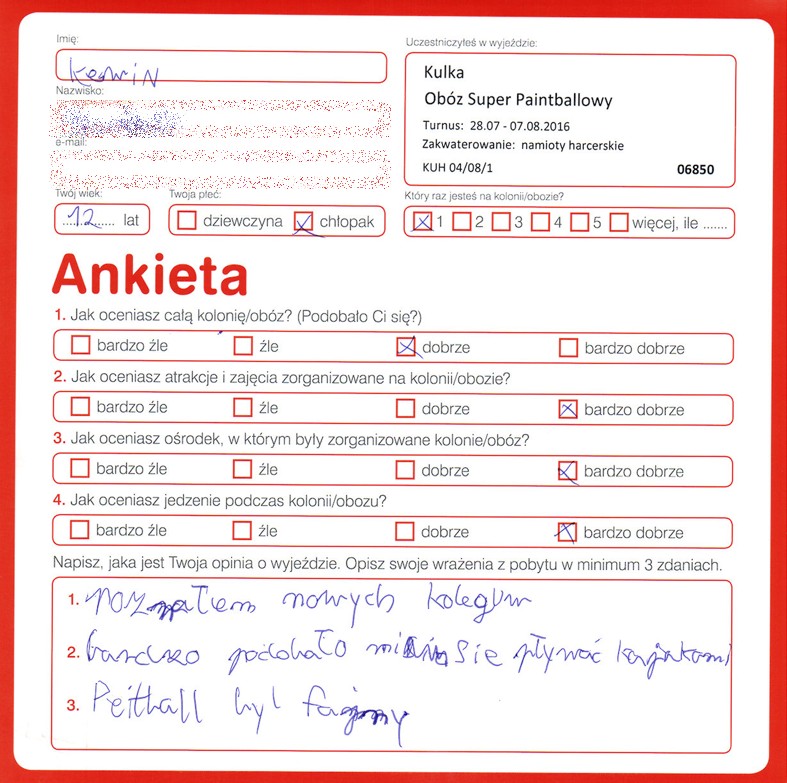 Imię:
Uczestniczyłeś w wyjeździe:
Kewin
Kulka
Nazwisko:
Obóz Super Paintballowy
Turnus: 28.07 - 07.08.2016
e-mail:
Zakwaterowanie: namioty harcerskie
KUH 04/08/1 06850
Twój wiek: Twoja płeć: Który raz jesteś na kolonii/obozie?
12 lat dziewczyna chłopak 1 2 3 4 5 więcej, ile .......
Ankieta
1. Jak oceniasz całą kolonię/obóz? (Podobało Ci się?)
bardzo źle źle dobrze bardzo dobrze
2. Jak oceniasz atrakcje i zajęcia zorganizowane na kolonii/obozie?
bardzo źle źle dobrze bardzo dobrze
3. Jak oceniasz ośrodek, w którym były zorganizowane kolonie/obóz?
bardzo źle źle dobrze bardzo dobrze
4. Jak oceniasz jedzenie podczas kolonii/obozu?
bardzo źle źle dobrze bardzo dobrze
Napisz, jaka jest Twoja opinia o wyjeździe. Opisz swoje wrażenia z pobytu w minimum 3 zdaniach.
1. poznałem nowych kolegów
2. bardzo podobało mi się pływać kajakami
3. Peitball był fajny